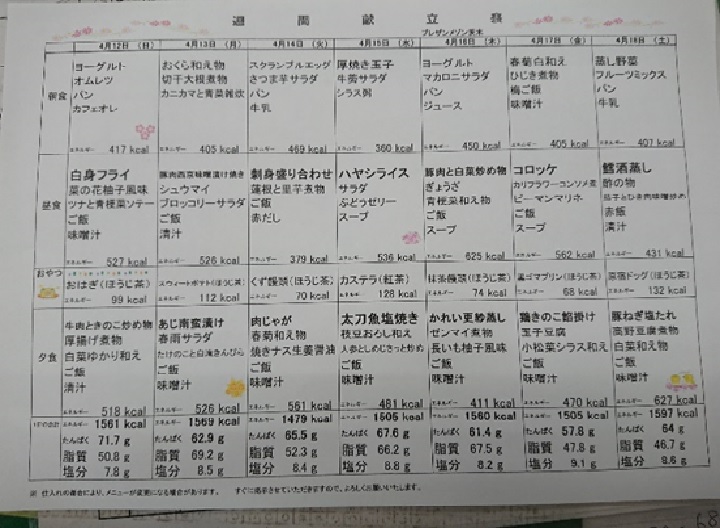 週間献立表
プレザンメゾン茨木
4月12日 (日) 4月13日 (月) 4月14日 (火) 4月15日 (水) 4月16日 (木) 4月17日 (金) 4月18日 (土)
朝食
ヨーグルト
オムレツ
パン
カフェオレ
エネルギー 417 kcal
おくら和え物
切干大根煮物
カニカマと青菜雑炊
エネルギー 405 kcal
スクランブルエッグ
さつま芋サラダ
パン
牛乳
エネルギー 469 kcal
厚焼き玉子
牛蒡サラダ
シラス粥
エネルギー 360 kcal
ヨーグルト
マカロニサラダ
パン
ジュース
エネルギー 450 kcal
春菊白和え
ひじき煮物
ご飯
味噌汁
エネルギー 405 kcal
蒸し野菜
フルーツミックス
パン
牛乳
エネルギー 407 kcal
昼食
白身フライ
菜の花柚子風味
ツナと青梗菜ソテー
ご飯
味噌汁
エネルギー 527 kcal
豚肉西京味噌漬け焼き
シュウマイ
ブロッコリーサラダ
ご飯
清汁
エネルギー 526 kcal
刺身盛り合わせ
蓮根と里芋煮物
ご飯
赤だし
エネルギー 379 kcal
ハヤシライス
サラダ
ぶどうゼリー
スープ
エネルギー 536 kcal
豚肉と白菜炒め物
ぎょうざ
青梗菜和え物
ご飯
スープ
エネルギー 625 kcal
コロッケ
カリフラワーコンソメ煮
ピーマンマリネ
ご飯
スープ
エネルギー 562 kcal
鱈酒蒸し
酢の物
茄子とひき肉味噌炒め
赤飯
清汁
エネルギー 431 kcal
おやつ
おはぎ(ほうじ茶)
エネルギー 99 kcal
スウィートポテト(ほうじ茶)
エネルギー 112 kcal
くず饅頭(ほうじ茶)
エネルギー 70 kcal
カステラ(紅茶)
エネルギー 128 kcal
抹茶饅頭(ほうじ茶)
エネルギー 74 kcal
黒ゴマプリン(ほうじ茶)
エネルギー 68 kcal
原宿ドッグ(ほうじ茶)
エネルギー 132 kcal
夕食
牛肉ときのこ炒め物
厚揚げ煮物
白菜ゆかり和え
ご飯
清汁
エネルギー 518 kcal
あじ南蛮漬け
春雨サラダ
たけのこと白滝きんぴら
ご飯
味噌汁
エネルギー 526 kcal
肉じゃが
春菊和え物
焼きナス生姜醤油
ご飯
味噌汁
エネルギー 561 kcal
太刀魚塩焼き
枝豆おろし和え
人参としめじさっと炒め
ご飯
味噌汁
エネルギー 481 kcal
かれい更紗蒸し
ゼンマイ煮物
長いも柚子風味
ご飯
味噌汁
エネルギー 411 kcal
鶏きのこ餡掛け
玉子豆腐
小松菜シラス和え
ご飯
味噌汁
エネルギー 470 kcal
豚ねぎ塩たれ
高野豆腐煮物
白菜和え物
ご飯
味噌汁
エネルギー 627 kcal
エネルギー 1561 kcal エネルギー 1569 kcal エネルギー 1479 kcal エネルギー 1505 kcal エネルギー 1560 kcal エネルギー 1505 kcal エネルギー 1597 kcal
たんぱく 71.7 g たんぱく 62.9 g たんぱく 65.5 g たんぱく 67.6 g たんぱく 61.4 g たんぱく 57.8 g たんぱく 64 g
脂質 50.8 g 脂質 69.2 g 脂質 52.3 g 脂質 66.2 g 脂質 67.5 g 脂質 47.8 g 脂質 46.7 g
塩分 7.8 g 塩分 8.5 g 塩分 8.4 g 塩分 8.8 g 塩分 8.2 g 塩分 9.1 g 塩分 8.6 g
※ 仕入れの都合により、メニューが変更になる場合があります。 すぐに掲示させていただきますので、よろしくお願いいたします。